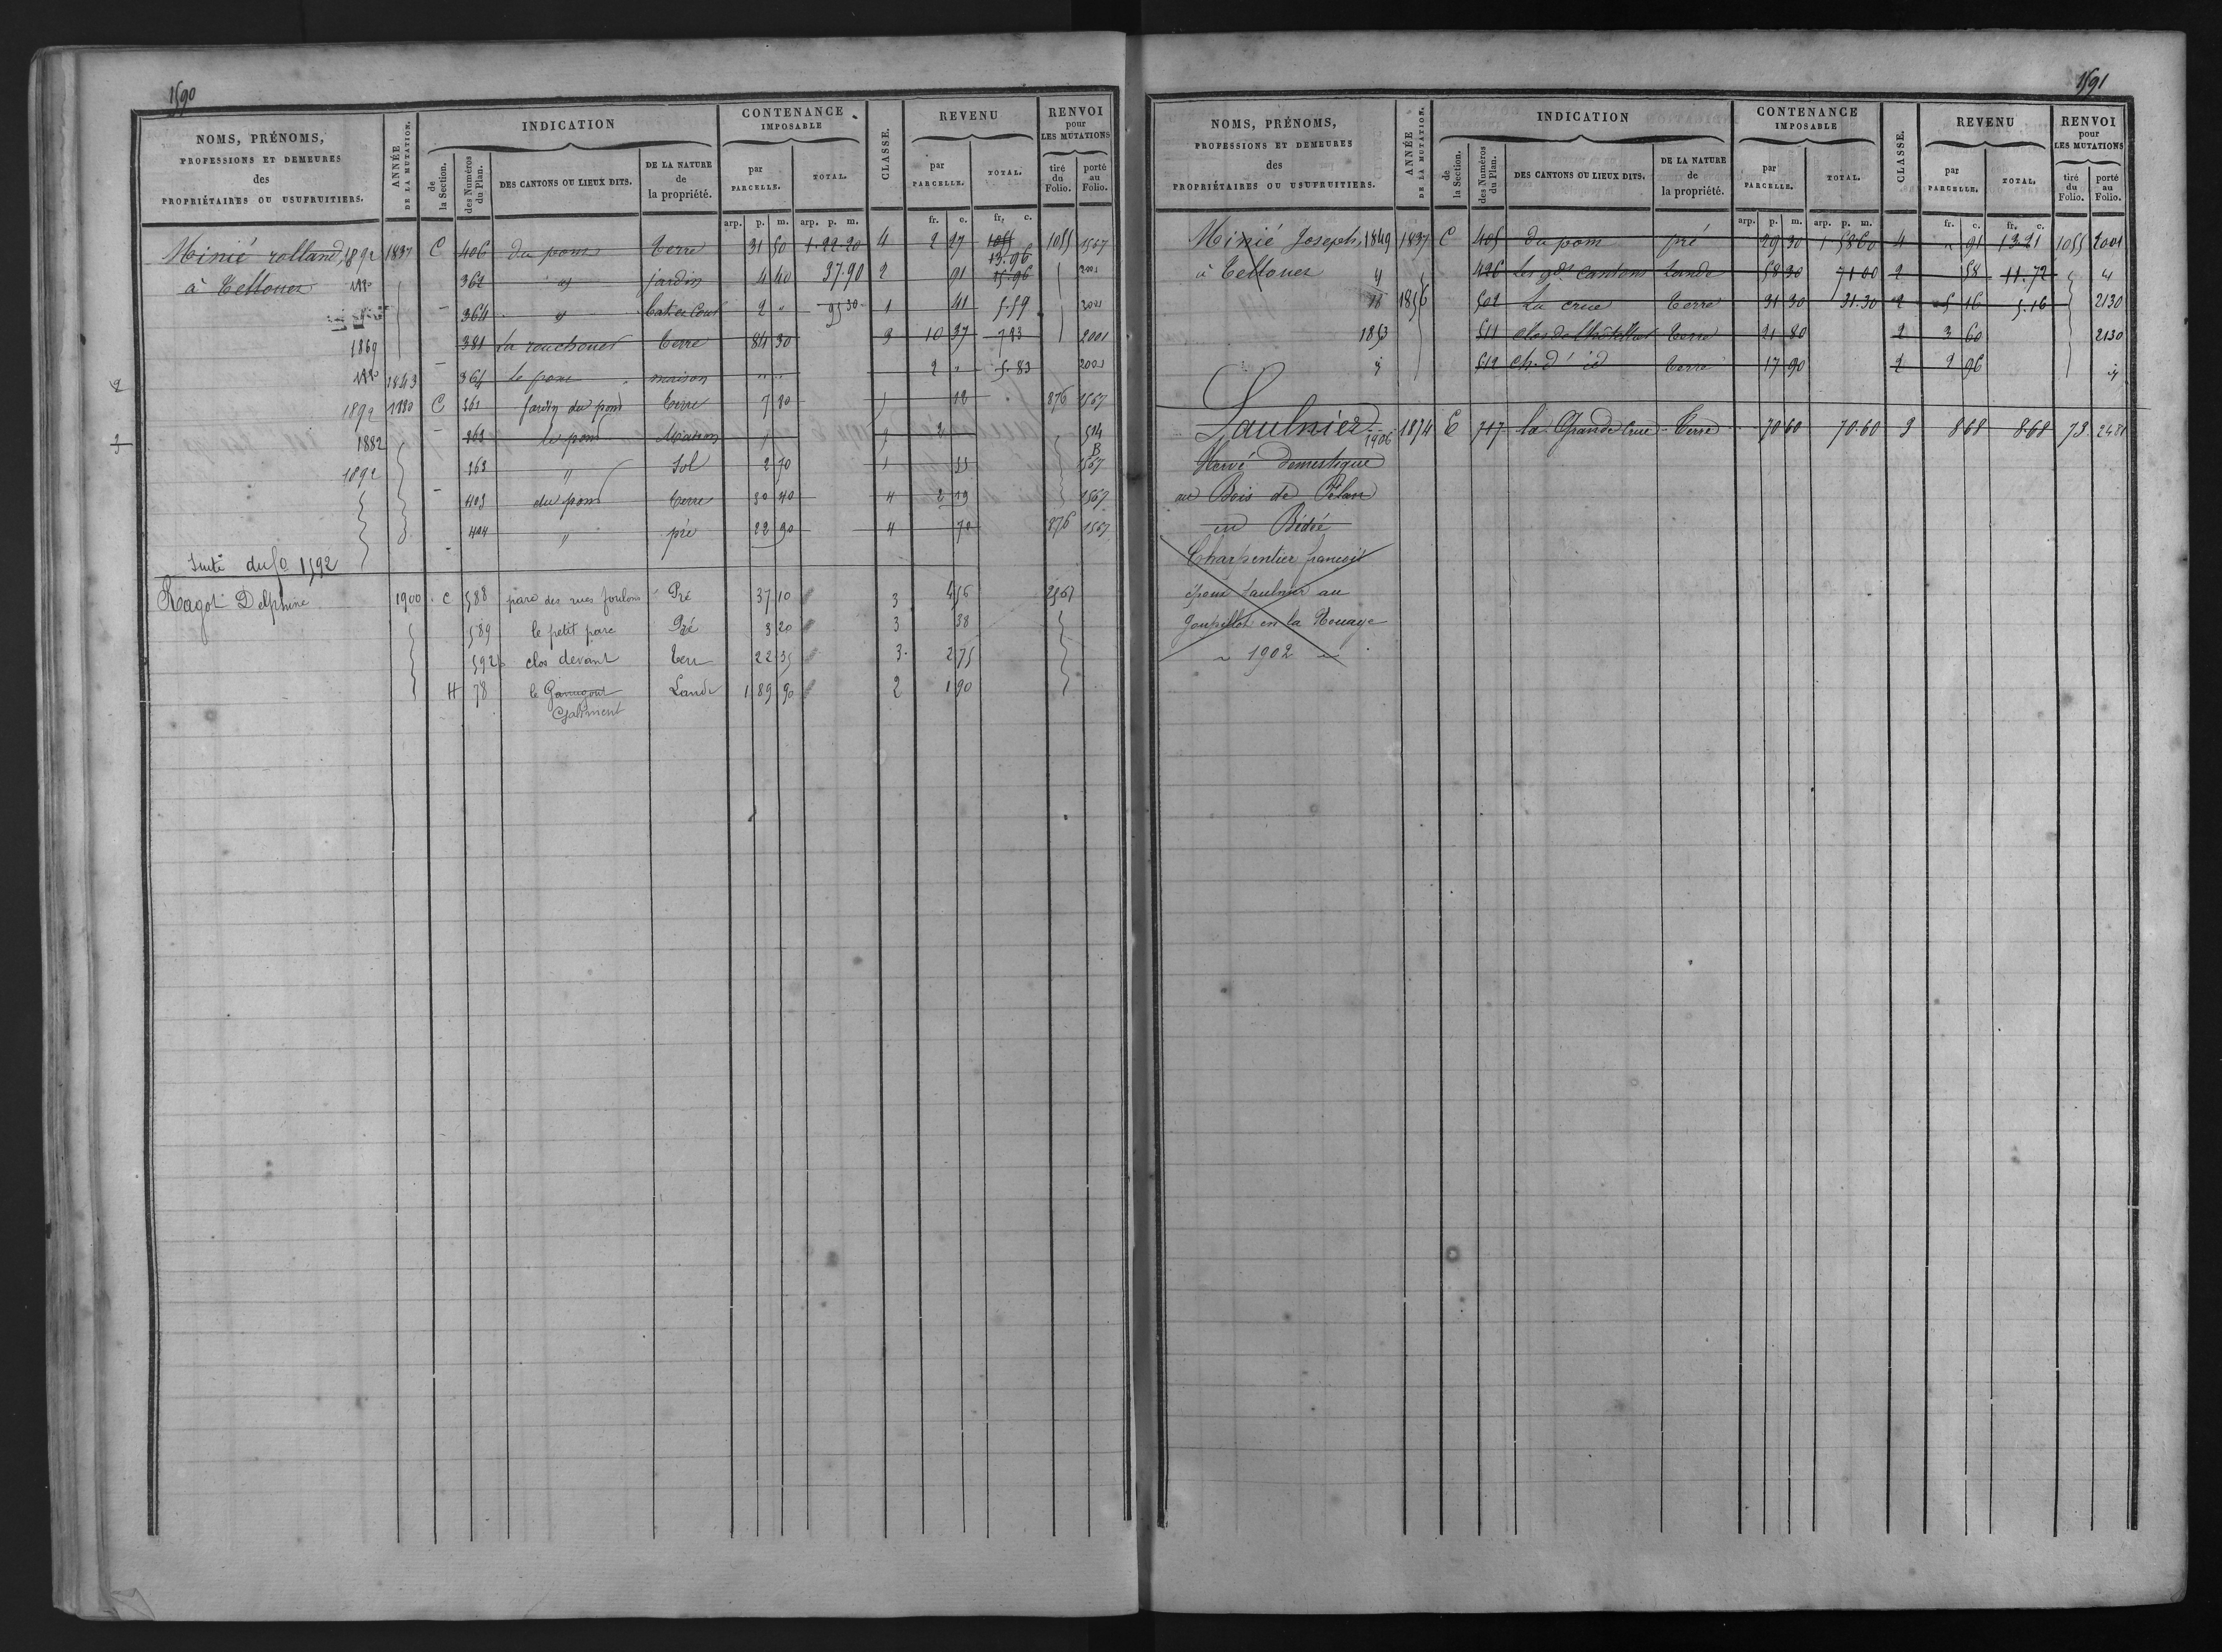 1590
NOMS, PRÉNOMS,
PROFESSIONS ET DEMEURES
des
PROPRIÉTAIRES OU USUFRUITIERS.
ANNÉE
DE LA MUTATION.
INDICATION
de
la Section.
des Numéros
du Plan.
DES CANTONS OU LIEUX DITS.
DE LA NATURE
de
la propriété.
CONTENANCE
IMPOSABLE
par
PARCELLE.
TOTAL.
CLASSE.
REVENU
par
PARCELLE.
TOTAL.
RENVOI
pour
LES MUTATIONS
tiré
du
Folio.
porté
au
Folio.
arp. p. m. arp. p. m. fr. c. fr. c.
Minié rolland 1892 1837 C 406 du pom terre 31 50 1.22.20 4 2 27 1055 1567
13.96
à 362 " jardin 4 40 37.90 2 91 15.96 2001
364 " 2 " 95 30 1 41 5.59 2001
1869 381 La terre 84 30 3 10 37 7 83 2001
1843 364 le maison " " 2 " 5.83 2001
1892 1880 C 361 Jardin du pom terre 7 80 1 12 876 1567
1882 362 le pom Maison 1 2 514
B
1892 363 " Sol 2 70 1 33 1567
403 du pom terre 30 40 4 2 19 1567
404 " pré 22 90 4 70 876 1567
Suite du fo 1592
Ragot Delphine 1900 C 588 parc des rues foulons Pré 37 10 3 4 56 2567
589 le petit parc Pré 3 20 3 38
592 clos devant terr 22 35 3 2 75
H 78 le Lande 1 89 90 2 1 90
1591
NOMS, PRÉNOMS,
PROFESSIONS ET DEMEURES
des
PROPRIÉTAIRES OU USUFRUITIERS.
ANNÉE
DE LA MUTATION.
INDICATION
de
la Section.
des Numéros
du Plan.
DES CANTONS OU LIEUX DITS.
DE LA NATURE
de
la propriété.
CONTENANCE
IMPOSABLE
par
PARCELLE.
TOTAL.
CLASSE.
REVENU
par
PARCELLE.
TOTAL.
RENVOI
pour
LES MUTATIONS
tiré
du
Folio.
porté
au
Folio.
arp. p. m. arp. p. m. fr. c. fr. c.
Minié Joseph 1849 1837 C 405 du pom pré 29 30 1 58 60 4 " 91 13 21 1055 2001
à " 426 les gds Cantons lande 58 30 71 00 2 58 11.72 "
" 1856 502 La crue terre 31 30 31.30 2 5 16 5.16 2130
1853 511 clos de terre 21 80 2 3 60 2130
" 512 ch. d' id terre 17 90 2 2 96 "
Saulnier 1906 1874 C 717 la Grande Crue Terre 70 60 70.60 3 8 68 8.68 73 2481
Hervé domestique
au Bois de
en Bédée
Charpentier françois
époux Saulnier au
en la Nouaye
~ 1902 ~